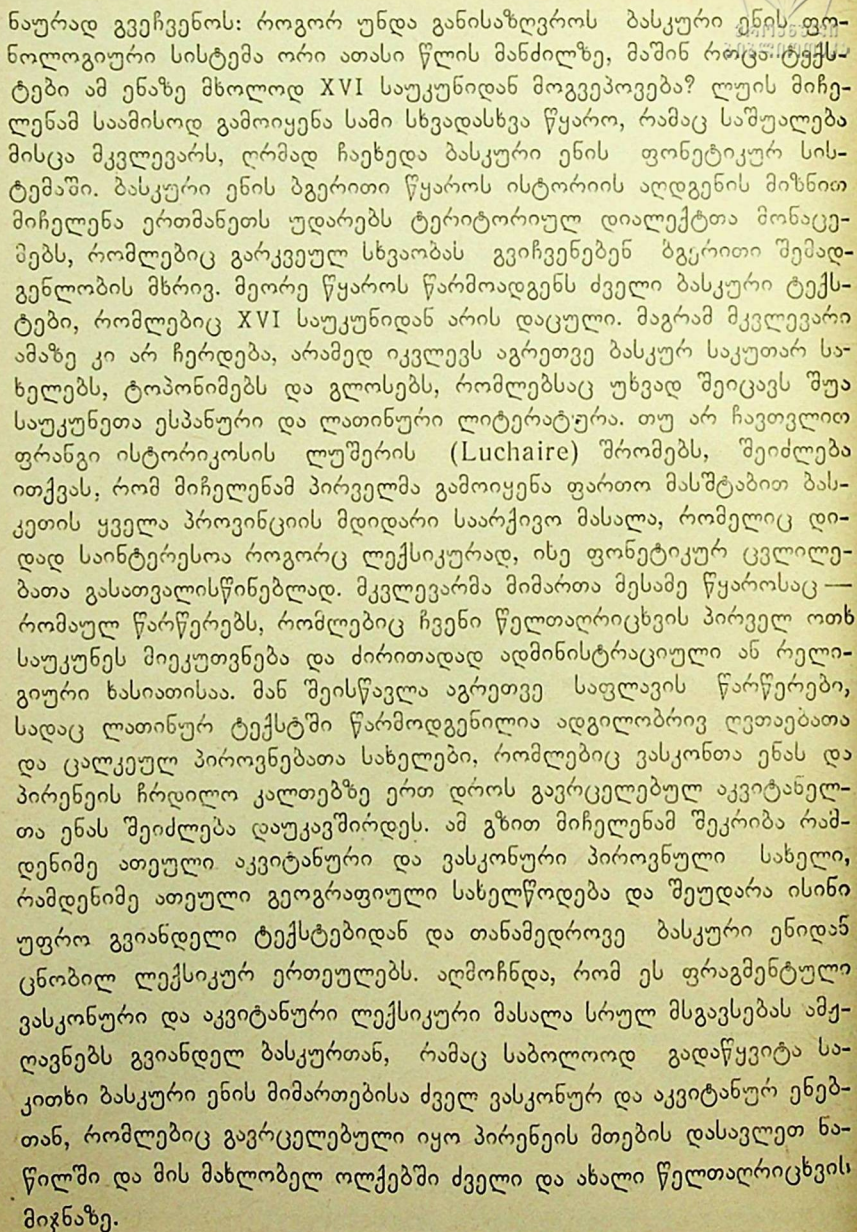 ნაურად გვეჩვენოს: როგორ უნდა განისაზღვროს ბასკური ენის ფო-
ნოლოგიური სისტემა ორი ათასი წლის მანძილზე, მაშინ როცა ტექს-
ტები ამ ენაზე მხოლოდ XVI საუკუნიდან მოგვეპოვება? ლუის მიჩე-
ლენამ საამისოდ გამოიყენა სამი სხვადასხვა წყარო, რამაც საშუალება
მისცა მკვლევარს, ღრმად ჩაეხედა ბასკური ენის ფონეტიკურ სის-
ტემაში. ბასკური ენის ბგერითი წყაროს ისტორიის აღდგენის მიზნით
მიჩელენა ერთმანეთს უდარებს ტერიტორიულ დიალექტთა მონაცე-
მებს, რომლებიც გარკვეულ სხვაობას გვიჩვენებენ ბგერითი შემად-
გენლობის მხრივ. მეორე წყაროს წარმოადგენს ძველი ბასკური ტექს-
ტები, რომლებიც XVI საუკუნიდან არის დაცული. მაგრამ მკვლევარი
ამაზე კი არ ჩერდება, არამედ იკვლევს აგრეთვე ბასკურ საკუთარ სა-
ხელებს, ტოპონიმებს და გლოსებს, რომლებსაც უხვად შეიცავს შუა
საუკუნეთა ესპანური და ლათინური ლიტერატურა. თუ არ ჩავთვლით
ფრანგი ისტორიკოსის ლუშერის (Luchaire) შრომებს, შეიძლება
ითქვას, რომ მიჩელენამ პირველმა გამოიყენა ფართო მასშტაბით ბას-
კეთის ყველა პროვინციის მდიდარი საარქივო მასალა, რომელიც დი-
დად საინტერესოა როგორც ლექსიკურად, ისე ფონეტიკურ ცვლილე-
ბათა გასათვალისწინებლად. მკვლევარმა მიმართა მესამე წყაროსაც —
რომაულ წარწერებს, რომლებიც ჩვენი წელთაღრიცხვის პირველ ოთხ
საუკუნეს მიეკუთვნება და ძირითადად ადმინისტრაციული ან რელი-
გიური ხასიათისაა. მან შეისწავლა აგრეთვე საფლავის წარწერები,
სადაც ლათინურ ტექსტში წარმოდგენილია ადგილობრივ ღვთაებათა
და ცალკეულ პიროვნებათა სახელები, რომლებიც ვასკონთა ენას და
პირენეის ჩრდილო კალთებზე ერთ დროს გავრცელებულ აკვიტანელ-
თა ენას შეიძლება დაუკავშირდეს. ამ გზით მიჩელენამ შეკრიბა რამ-
დენიმე ათეული აკვიტანური და ვასკონური პიროვნული სახელი,
რამდენიმე ათეული გეოგრაფიული სახელწოდება და შეუდარა ისინი
უფრო გვიანდელი ტექსტებიდან და თანამედროვე ბასკური ენიდან
ცნობილ ლექსიკურ ერთეულებს. აღმოჩნდა, რომ ეს ფრაგმენტული
ვასკონური და აკვიტანური ლექსიკური მასალა სრულ მსგავსებას ამჟ-
ღავნებს გვიანდელ ბასკურთან, რამაც საბოლოოდ გადაწყვიტა სა-
კითხი ბასკური ენის მიმართებისა ძველ ვასკონურ და აკვიტანურ ენებ-
თან, რომლებიც გავრცელებული იყო პირენეის მთების დასავლეთ ნა-
წილში და მის მახლობელ ოლქებში ძველი და ახალი წელთაღრიცხვის
მიჯნაზე.